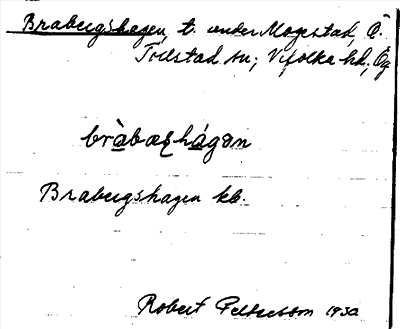 Brabergshagen, t. under Mogestad, Ö.
Tollstad sn; Vifolka hd; Ög
bràbæꞔhágən
Brabergshagen kb.
Robert Pettersson 1930